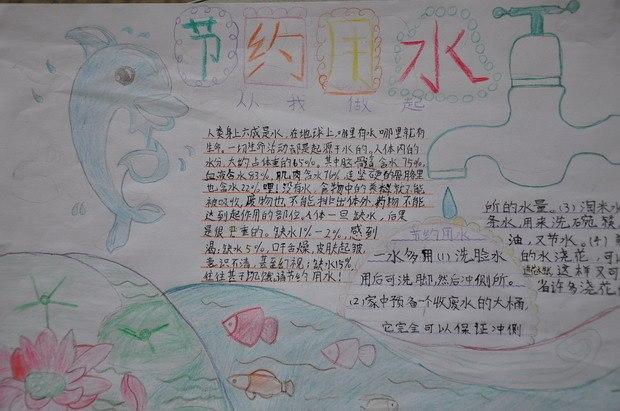 节约用水
从我做起
人类身上六成是水,在地球上,哪里有水,哪里就有
生命。一切生命活动都是起源于水的。人体内的
水分,大约占体重的65%。其中脑髓含水75%,
血液含水83%,肌肉含水76%,连坚硬的骨骼里
也含水22%哩!没有水,食物中的养料就不能
被吸收,废物也不能排出体外,药物不能
达到起作用的部位。人体一旦缺水,后果
是很严重的。缺水1%-2%,感到
渴;缺水5%,口干舌燥,皮肤起皱,
意识不清,甚至幻视;缺水15%,
往往甚于饥饿。请节约用水!
节约用水
一水多用(1)洗脸水
用后可洗脚,然后冲厕所。
(2)家中预备一个收废水的大桶,
它完全可以保证冲厕
所的水量。(3)淘米水
条水,用来洗碗筷
油,又节水。(4)
的水浇花,可
这样又可
省许多浇花